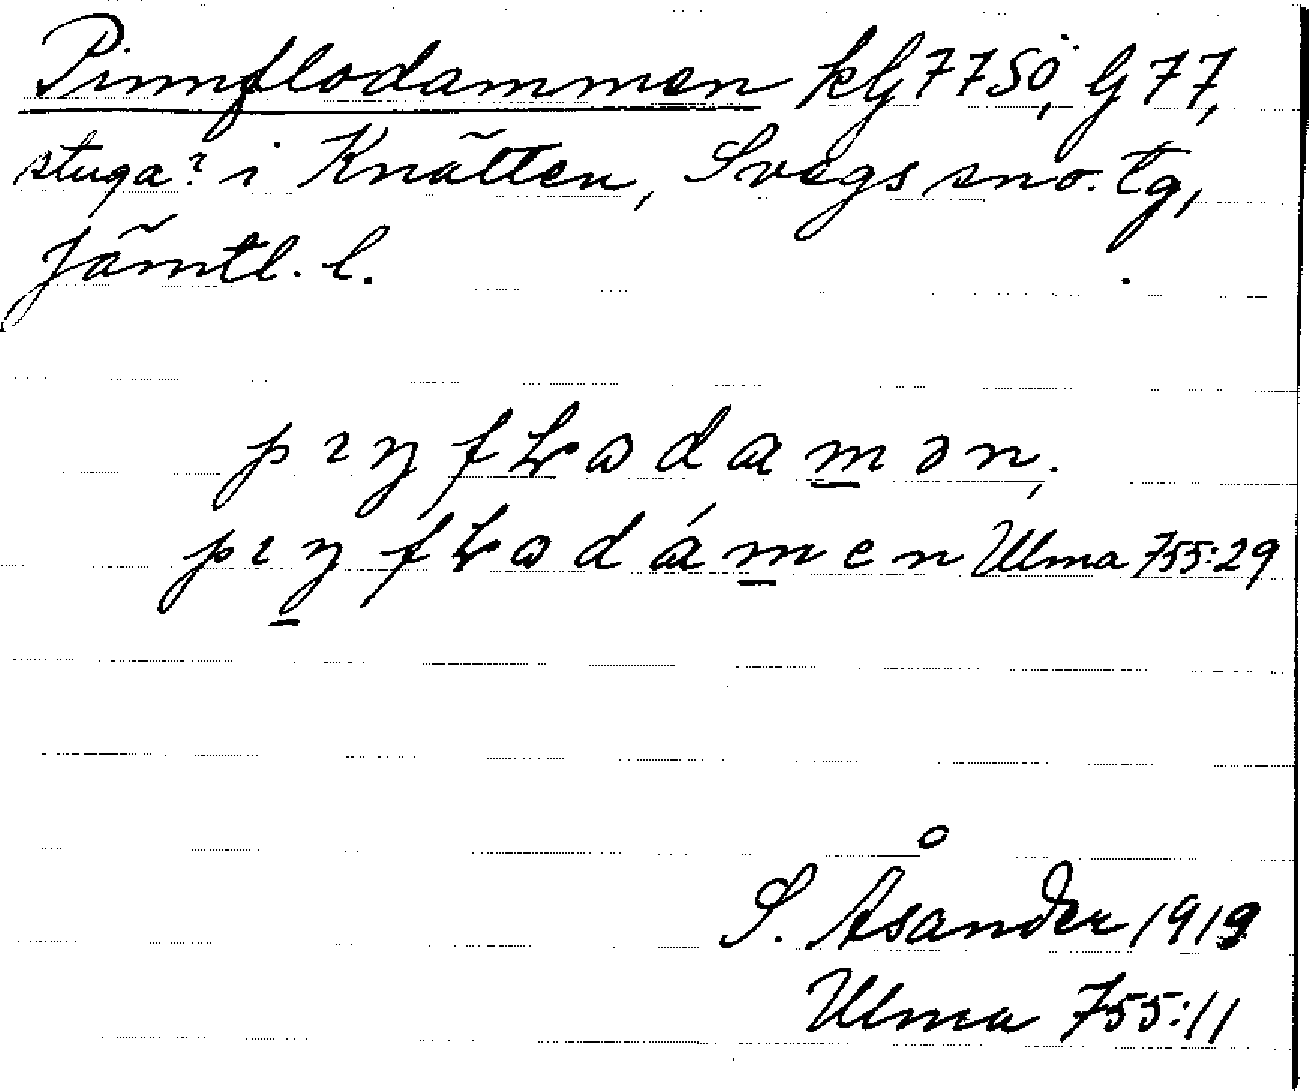 Pinnflodammen kG 77 SÖ, G 77,
stuga? i Knätten, Svegs sno. tg,
Jämtl. l.
pıŋfꞎɷdamən,
pıŋfꞎɷdámen Ulma 755:29
S. Åsander 1919
Ulma 755:11